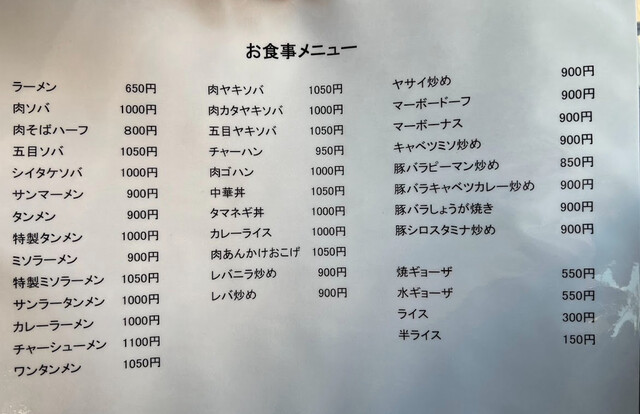 お食事メニュー
ラーメン 650円
肉ソバ 1000円
肉そばハーフ 800円
五目ソバ 1050円
シイタケソバ 1000円
サンマーメン 900円
タンメン 900円
特製タンメン 1000円
ミソラーメン 900円
特製ミソラーメン 1050円
サンラータンメン 1000円
カレーラーメン 1000円
チャーシューメン 1100円
ワンタンメン 1050円
肉ヤキソバ 1050円
肉カタヤキソバ 1000円
五目ヤキソバ 1050円
チャーハン 950円
肉ゴハン 1000円
中華丼 1050円
タマネギ丼 1000円
カレーライス 1000円
肉あんかけおこげ 1050円
レバニラ炒め 900円
レバ炒め 900円
ヤサイ炒め 900円
マーボードーフ 900円
マーボーナス 900円
キャベツミソ炒め 900円
豚バラピーマン炒め 850円
豚バラキャベツカレー炒め 900円
豚バラしょうが焼き 900円
豚シロスタミナ炒め 900円
焼ギョーザ 550円
水ギョーザ 550円
ライス 300円
半ライス 150円